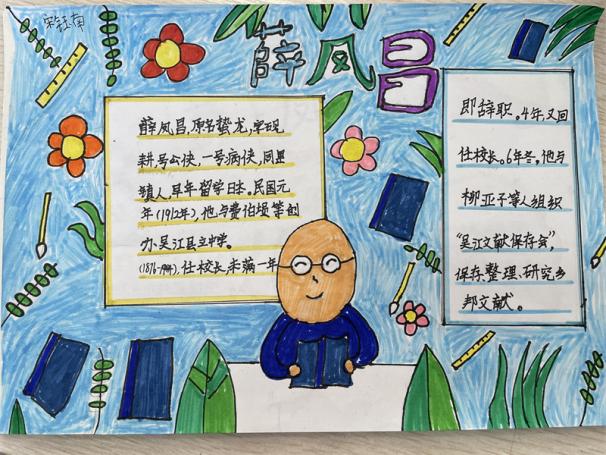 薛凤昌
薛凤昌,原名蛰龙,字砚
耕,号公侠,一号病侠,同里
镇人,早年留学日本。民国元
年(1912年),他与费伯埙等创
办吴江县立中学。
(1876-1944),任校长,未满一年
即辞职。4年,又回
任校长。6年冬,他与
柳亚子等人组织
“吴江文献保存会”,
保存、整理、研究乡
邦文献。